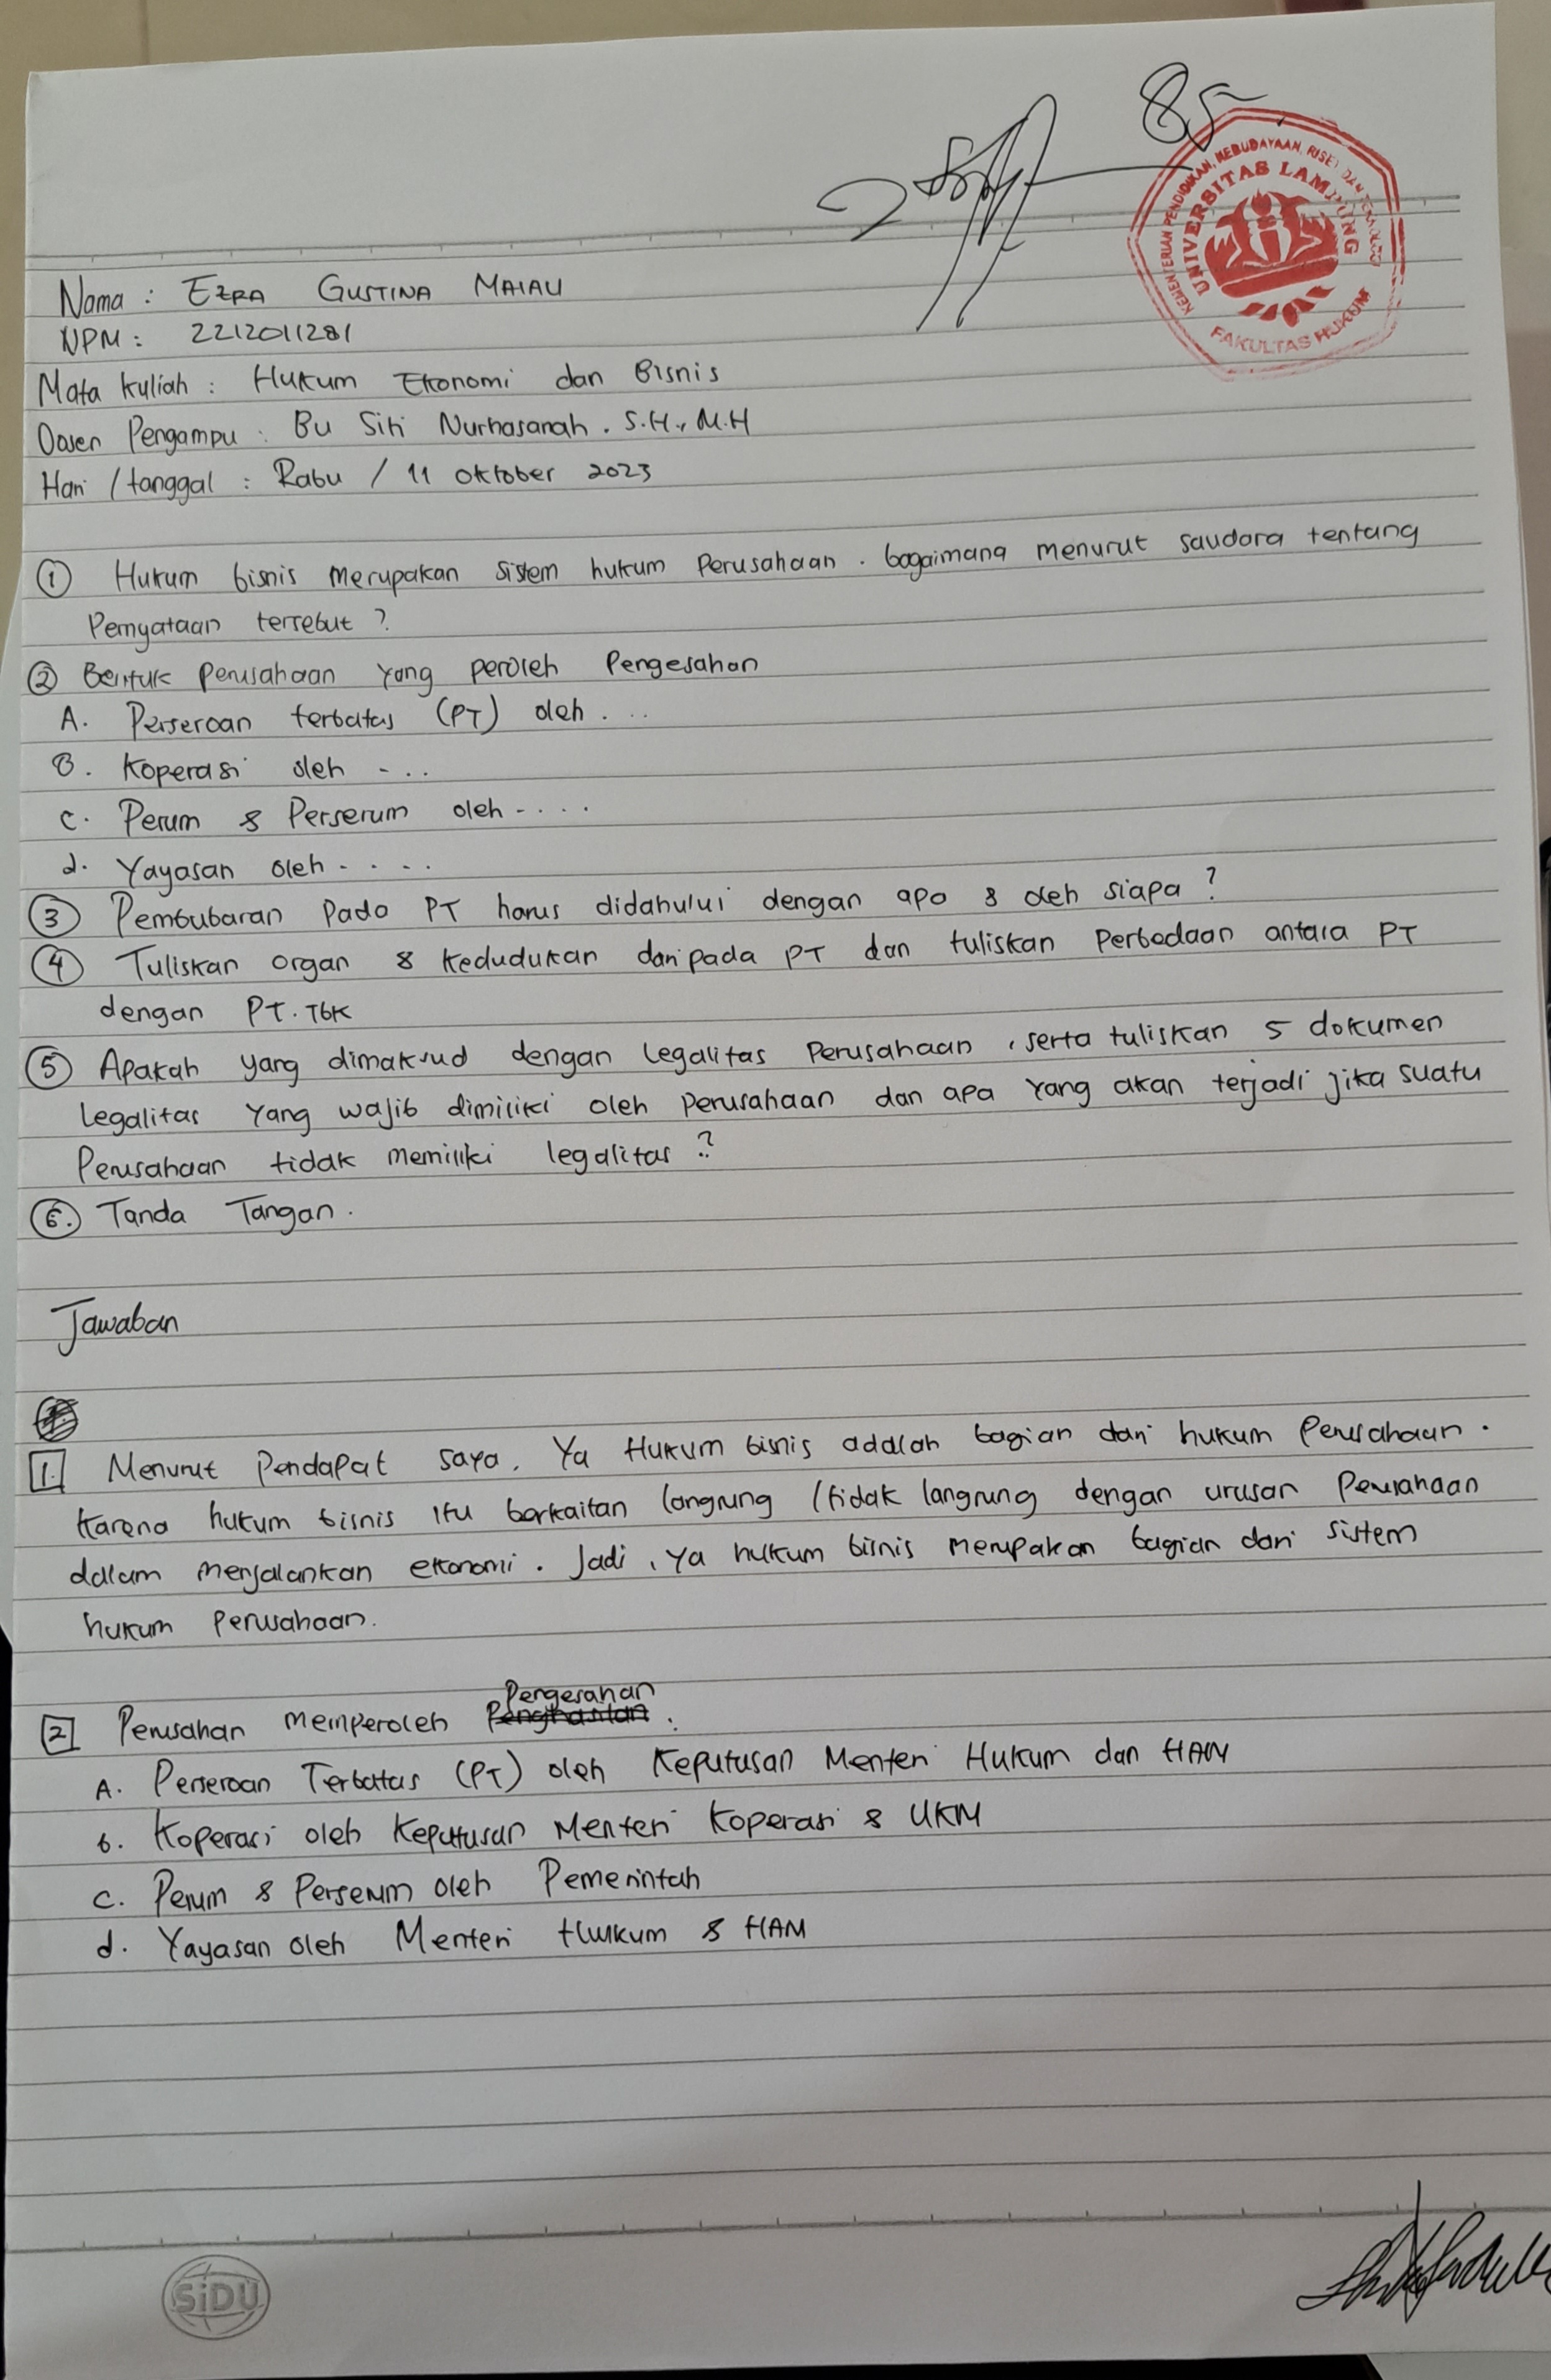 85
KEMENTERIAN PENDIDIKAN, KEBUDAYAAN, RISET DAN TEKNOLOGI
UNIVERSITAS LAMPUNG
FAKULTAS HUKUM
Nama : EZRA GUSTINA MALAU
NPM : 2212011281
Mata Kuliah : Hukum Ekonomi dan Bisnis
Dosen Pengampu : Bu Siti Nurhasanah. S.H., M.H
Hari / tanggal : Rabu / 11 Oktober 2023
① Hukum bisnis merupakan sistem hukum Perusahaan. bagaimana menurut saudara tentang
Pernyataan tersebut ?
② Bentuk perusahaan yang peroleh Pengesahan
A. Perseroan terbatas (PT) oleh . . .
B. Koperasi oleh - . .
C. Perum & Perserum oleh - . . .
d. Yayasan oleh - . . .
③ Pembubaran Pada PT harus didahului dengan apa & oleh siapa ?
④ Tuliskan organ & kedudukan daripada PT dan tuliskan Perbedaan antara PT
dengan PT. Tbk
⑤ Apakah yang dimaksud dengan legalitas Perusahaan, serta tuliskan 5 dokumen
legalitas yang wajib dimiliki oleh perusahaan dan apa yang akan terjadi jika suatu
Perusahaan tidak memiliki legalitas ?
⑥. Tanda Tangan.
Jawaban
1. Menurut Pendapat saya, Ya Hukum bisnis adalah bagian dari hukum Perusahaan.
Karena hukum bisnis itu berkaitan langsung / tidak langsung dengan urusan Perusahaan
dalam menjalankan ekonomi. Jadi, ya hukum bisnis merupakan bagian dari sistem
hukum Perusahaan.
2 Perusahan memperoleh Pengesahan :
A. Perseroan Terbatas (PT) oleh Keputusan Menteri Hukum dan HAM
b. Koperasi oleh Keputusan Menteri Koperasi & UKM
C. Perum & Perserum oleh Pemerintah
d. Yayasan oleh Menteri Hukum & HAM
SiDU